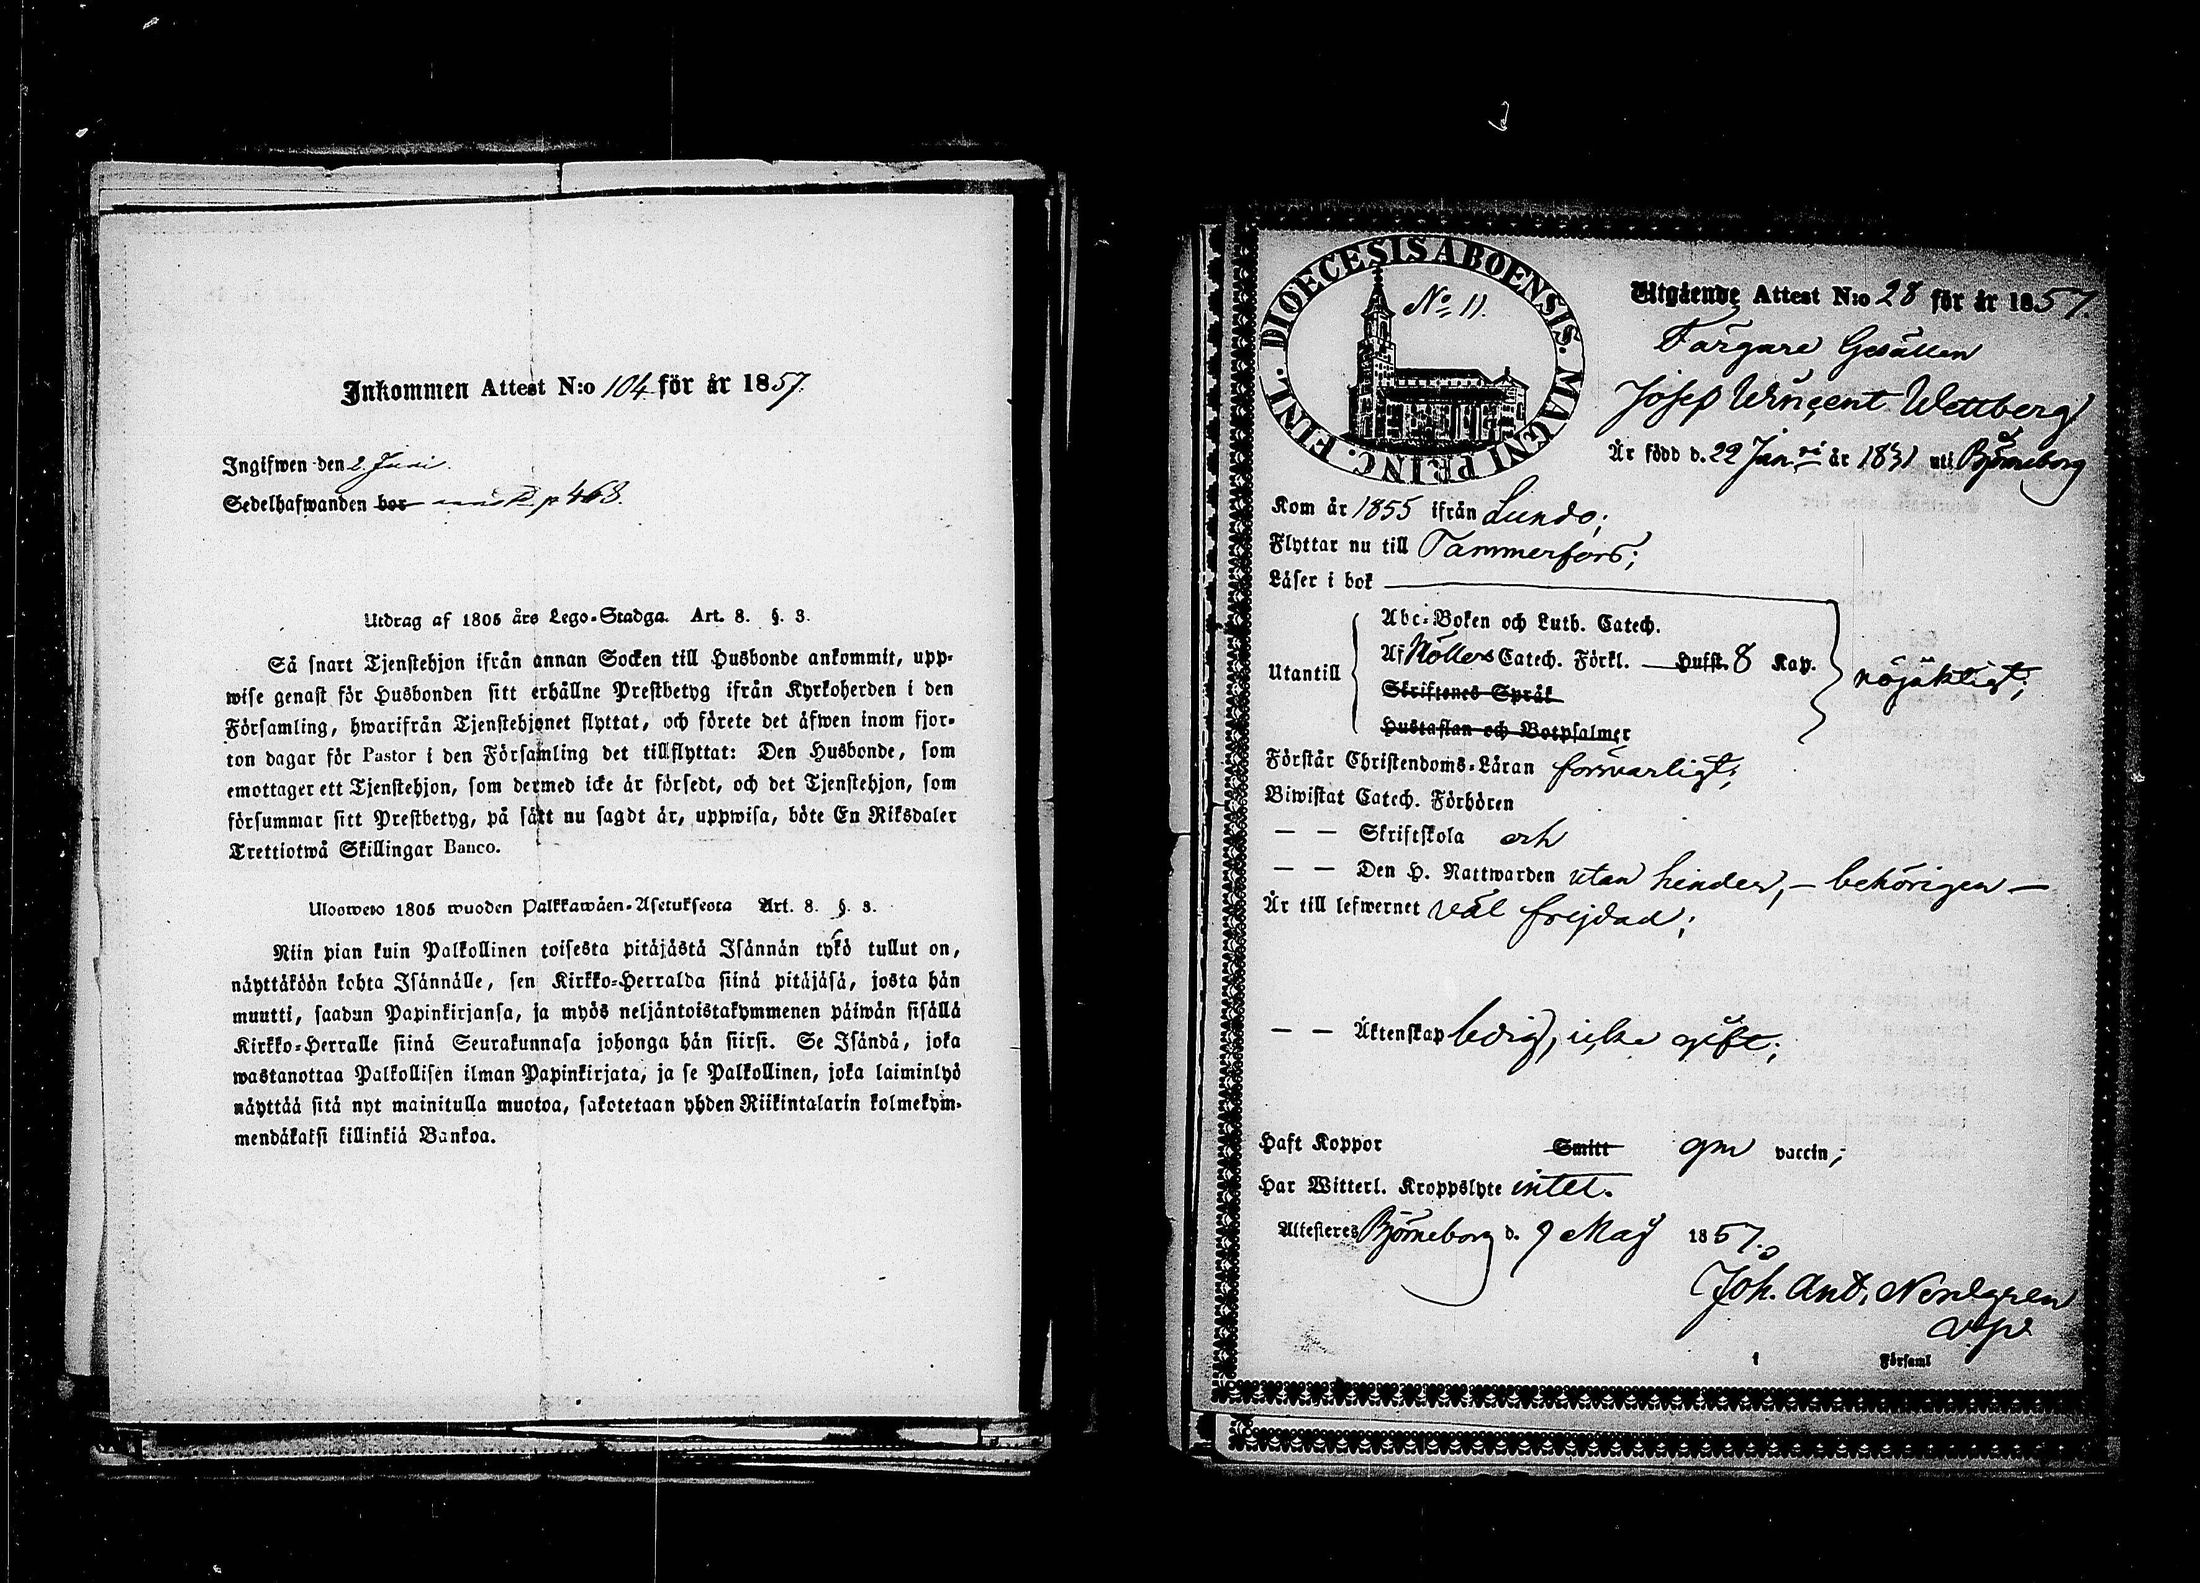 Inkommen Attest N:o 104 för år 1857.
Ingifwen den 2. Juni.
Sedelhafwanden bor p 468.
Utdrag af 1805 års Lego-Stadga. Art. 8. §. 3.
Så snart Tjenstehjon ifrån annan Socken till Husbonde ankommit, upp-
wise genast för Husbonden sitt erhållne Prestbetyg ifrån Kyrkoherden i den
Församling, hwarifrån Tjenstehjonet flyttat, och förete det äfwen inom fjor-
ton dagar för Pastor i den Församling det tillflyttat: Den Husbonde, som
emottager ett Tjenstehjon, som dermed icke är försedt, och det Tjenstehjon, som
försummar sitt Prestbetyg, på sätt nu sagdt är, uppwisa, böte En Riksdaler
Trettiotwå Skillingar Banco.
Uloswero 1805 wuoden Palkkawäen-Asetuksesta Art. 8. §. 3.
Niin pian kuin Palkollinen toisesta pitäjästä Isännän tykö tullut on,
näyttäköön kohta Isännälle, sen Kirkko-Herralda siinä pitäjäsä, josta hän
muutti, saadun Papinkirjansa, ja myös neljäntoistakymmenen päiwän sisällä
Kirkko-Herralle siinä Seurakunnasa johonga hän siirsi. Se Isändä, joka
wastanottaa Palkollisen ilman Papinkirjata, ja se Palkollinen, joka laiminlyö
näyttää sitä nyt mainitulla muotoa, sakotetaan yhden Riikintalarin kolmekym-
mendäkatsi killinkiä Bankoa.
DIOECESIS ABOENSIS. MAGNI PRINC. FINL.
No 11.
Utgående Attest N:o 28 för år 1857.
Färgare Gesällen
Josef Winçent Wettberg
Är född d. 22 Jan.ri år 1831 uti Björneborg
Kom år 1855 ifrån Lundo;
Flyttar nu till Tammerfors;
Läser i bok
Utantill
Abc-Boken och Luth. Catech.
Af Möllers Catech. Förkl. Hufst. 8 Kap.
Skriftenes Språk
Hustaflan och Botpsalmer
nöjaktigt;
Förstår Christendoms-Läran försvarligt;
Biwistat Catech. Förhören
— — Skriftskola och
— — Den H. Nattwarden utan hinder, – behörigen –
Är till lefwernet väl frejdad;
— — Äktenskap ledig, icke gift;
Haft Koppor Smitt gm vaccin;
Har Witterl. Kroppslyte intet.
Attesteres Björneborg d. 9 Maj 1857.
Joh. And. Nordgren
v.p.
i Församl